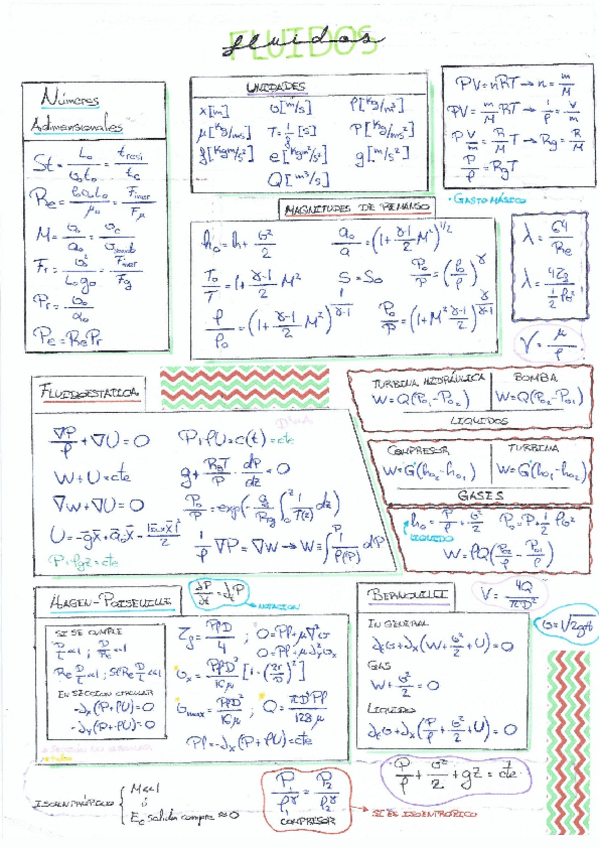 FLUIDOS
fluidos
Números
Adimensionales
St = Lo/(υo to) = t resi/tc
Re = ρo υo Lo/μo = F iner/Fμ
M = υo/ao = υc/υsonido
Fr = υ²/(Lo go) = F iner/Fg
Pr = υo/αo
Pe = Re Pr
UNIDADES
x[m] υ[m/s] ρ[kg/m³]
μ[kg/ms] T = 1/f [s] P[kg/ms²]
f[kgm/s²] e[kgm²/s²] g[m/s²]
Q[m³/s]
PV = nRT → n = m/M
PV = m/M RT → 1/ρ = V/m
P V/m = R/M T → Rg = R/M
P/ρ = RgT
· GASTO MÁSICO
MAGNITUDES DE REMANSO
ho = h + υ²/2 ao/a = (1 + (γ-1)/2 M²)^1/2
To/T = 1 + (γ-1)/2 M² S = So Po/P = (ρo/ρ)^γ
ρ/ρo = (1 + (γ-1)/2 M²)^1/(γ-1) Po/P = (1 + M² (γ-1)/2)^γ/(γ-1)
λ = 64/Re
λ = 4Zg/(1/2 ρυ²)
ν = μ/ρ
FLUIDOESTATICA
∇P/ρ + ∇U = 0 P+ρU = c(t) = cte
W + U = cte g + RgT/P · dP/dz = 0
∇w + ∇U = 0 Po/P = exp(- g/Rg ∫ 1/T(z) dz)
1/ρ ∇P = ∇w → W = ∫ 1/ρ(P) dP
P+ρgz = cte
TURBINA HIDRÁULICA BOMBA
W = Q(Po1 - Po2) W = Q(Po2 - Po1)
LÍQUIDOS
COMPRESOR TURBINA
W = G(ho2 - ho1) W = G(ho1 - ho2)
GASES
ho = P/ρ + υ²/2 Po = P + 1/2 ρυ²
LÍQUIDO
W = ρQ(Po2/ρ - Po1/ρ)
HAGEN-POISEUILLE
∂P/∂t = ∂tP
NOTACION
SI SE CUMPLE
D/L <<1 ; D/Rc <<1
Re D/L <<1 ; St Re D/L <<1
EN SECCION CIRCULAR
-∂x(P+ρU) = 0
-∂y(P+ρU) = 0
Zf = PℓD/4 ; 0 = Pℓ + μ∇²υ
υx = PℓD²/16μ [1 - (2r/D)²]
υmax = PℓD²/16μ ; Q = πD⁴Pℓ/128μ
Pℓ = -∂x(P+ρU) = cte
BERNOUILLI
V = 4Q/πD²
υ = √2gΔh
IN GENERAL
∂tυ + ∂x(W + υ²/2 + U) = 0
GAS
W + υ²/2 = 0
LÍQUIDO
∂tυ + ∂x(P/ρ + υ²/2 + U) = 0
P/ρ + υ²/2 + gz = cte
ISOENTRÓPICO
M<<1
ó
Ec salida compre ≈ 0
P1/ρ1^γ = P2/ρ2^γ
COMPRESOR
SI ES ISOENTROPICO